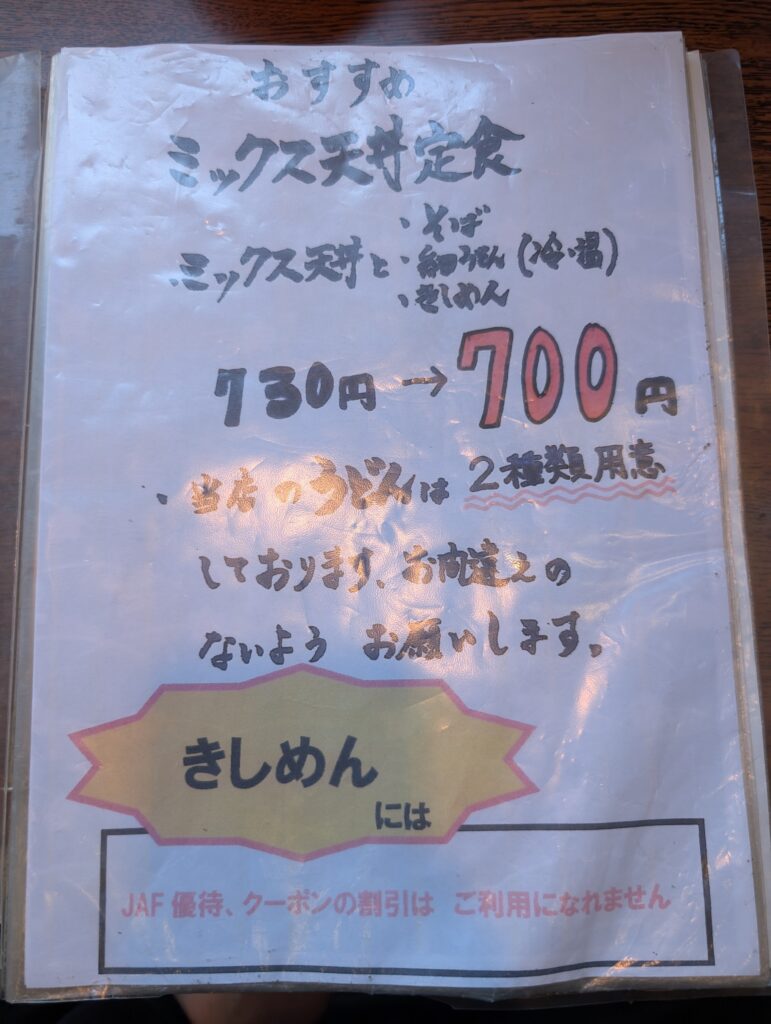 おすすめ
ミックス天丼定食
ミックス天丼と
・そば
・細うどん(冷・温)
・きしめん
730円→700円
・当店のうどんは2種類用意
しております、お間違えの
ないよう お願いします。
きしめん
には
JAF 優待、クーポンの割引は ご利用になれません